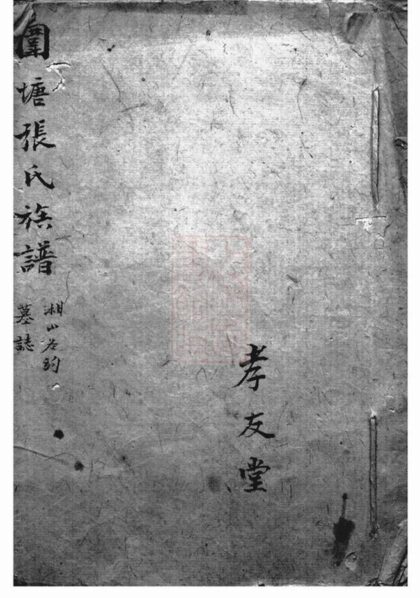 孝友堂
圍塘張氏族譜
湘山
墓誌